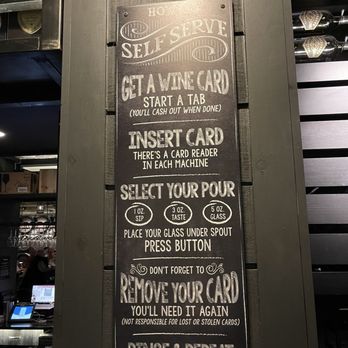 HO
SELF SERVE
GET A WINE CARD
START A TAB
(YOU'LL CASH OUT WHEN DONE)
INSERT CARD
THERE'S A CARD READER
IN EACH MACHINE
SELECT YOUR POUR
1 OZ SIP
3 OZ TASTE
5 OZ GLASS
PLACE YOUR GLASS UNDER SPOUT
PRESS BUTTON
DON'T FORGET TO
REMOVE YOUR CARD
YOU'LL NEED IT AGAIN
(NOT RESPONSIBLE FOR LOST OR STOLEN CARDS)
RINSE & REPEAT